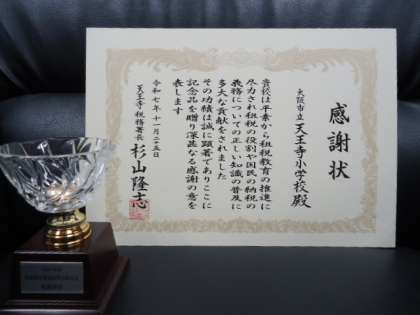 感謝状
大阪市立天王寺小学校殿
貴校は平素から租税教育の推進に
尽力され租税の役割や国民の納税の
義務についての正しい知識の普及に
多大な貢献をされました
その功績は誠に顕著でありここに
記念品を贈り深甚なる感謝の意を
表します
令和七年十一月二五日
天王寺税務署長 杉山隆志